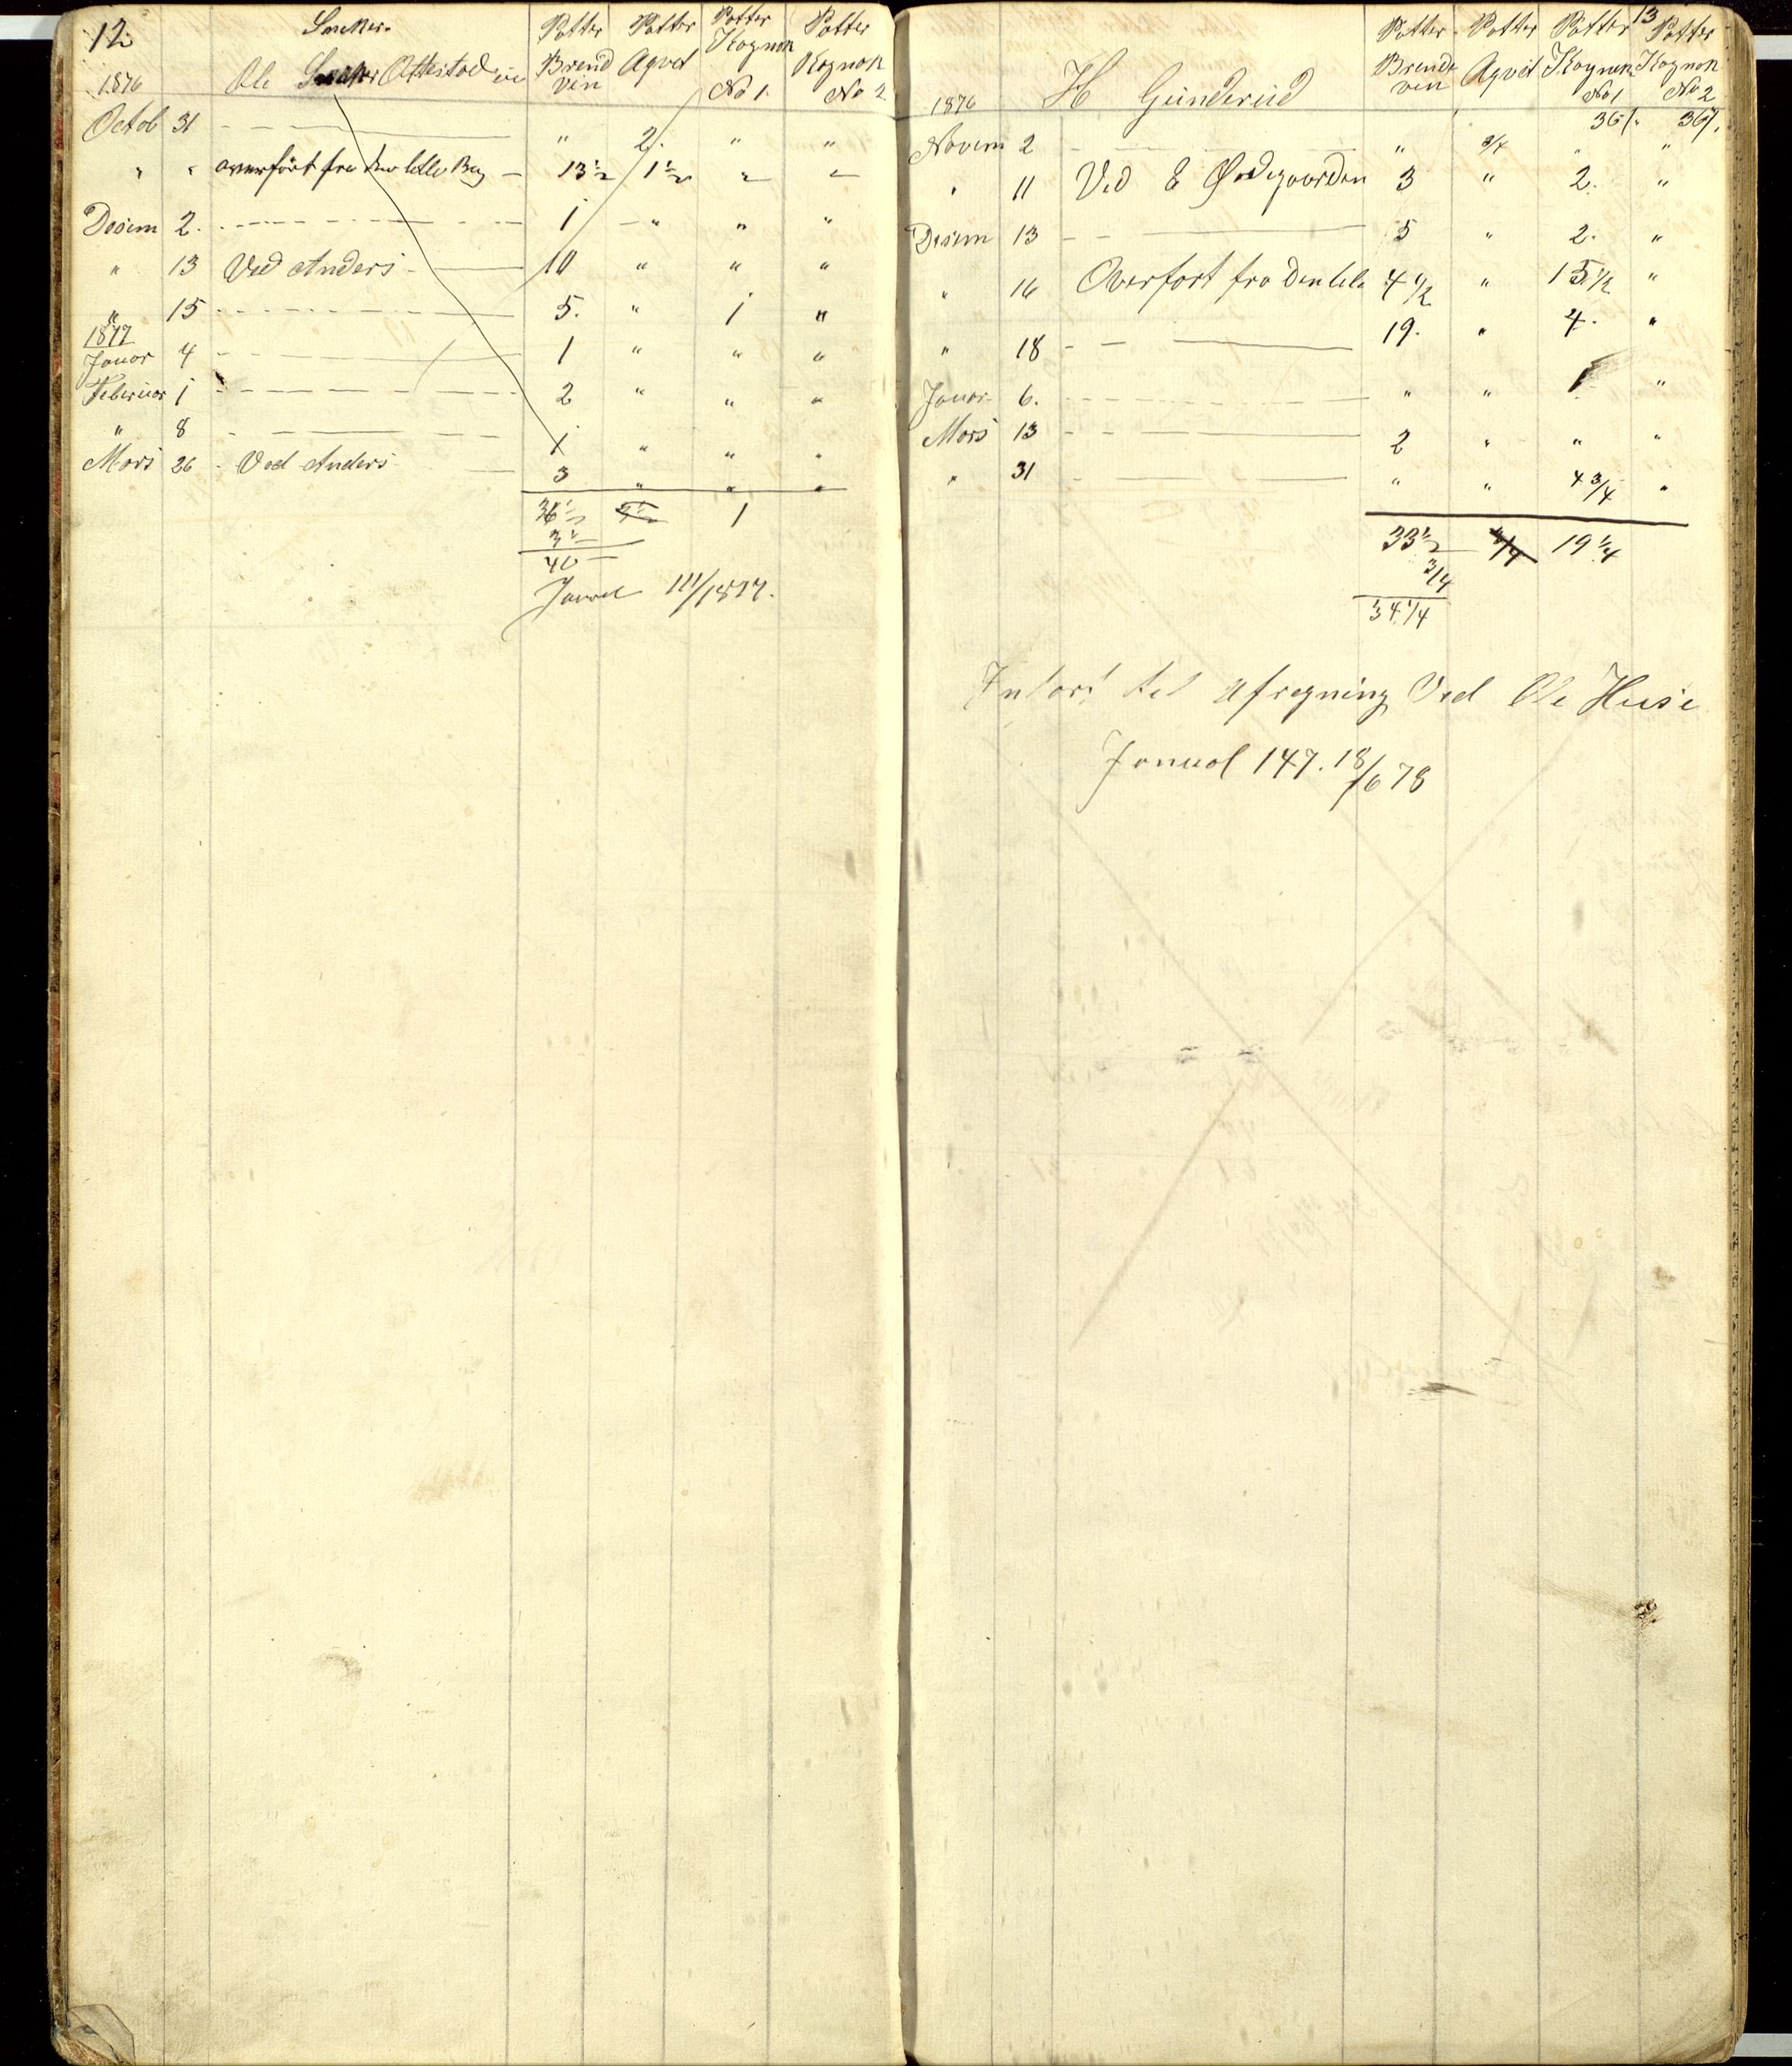 12
Sneker
1876 Ole Sneker Ottestad
Potter Brendvin Potter Aqvet Potter Kognak No 1. Potter Kognak No 2
Octob 31 " 2. " "
" " overfört fra den lille Bog 13½ 1½ " "
Desem 2. 1 " " "
" 13 Ved Anders 10 " " "
" 15 5. " 1 "
1877
Januar 4 1 " " "
Februar 1 2 " " "
" 8 1 " " "
Mars 26 Ved Anders 3 " " "
36½ 3½ 1
3½
40
111/1877.
13
1876 H Gunderud
Potter Brendevin Potter Aqvet Potter Kognak No 1 36%. Potter Kognak No 2 36%.
Novem 2 " 3/4 " "
" 11 Ved E Ødegaarden 3 " 2. "
Desem 13 5 " 2. "
" 16 Overfort fra den lile 4½ " 15½ "
" 18 19. " 4. "
Januar 6. " " 1 "
Mars 13 2 " " "
" 31 " " 4 3/4 "
33½ 3/4 19¼
3/4
34¼
til Afregning Ved Ole Huse
Jonual 147. 18/6 78